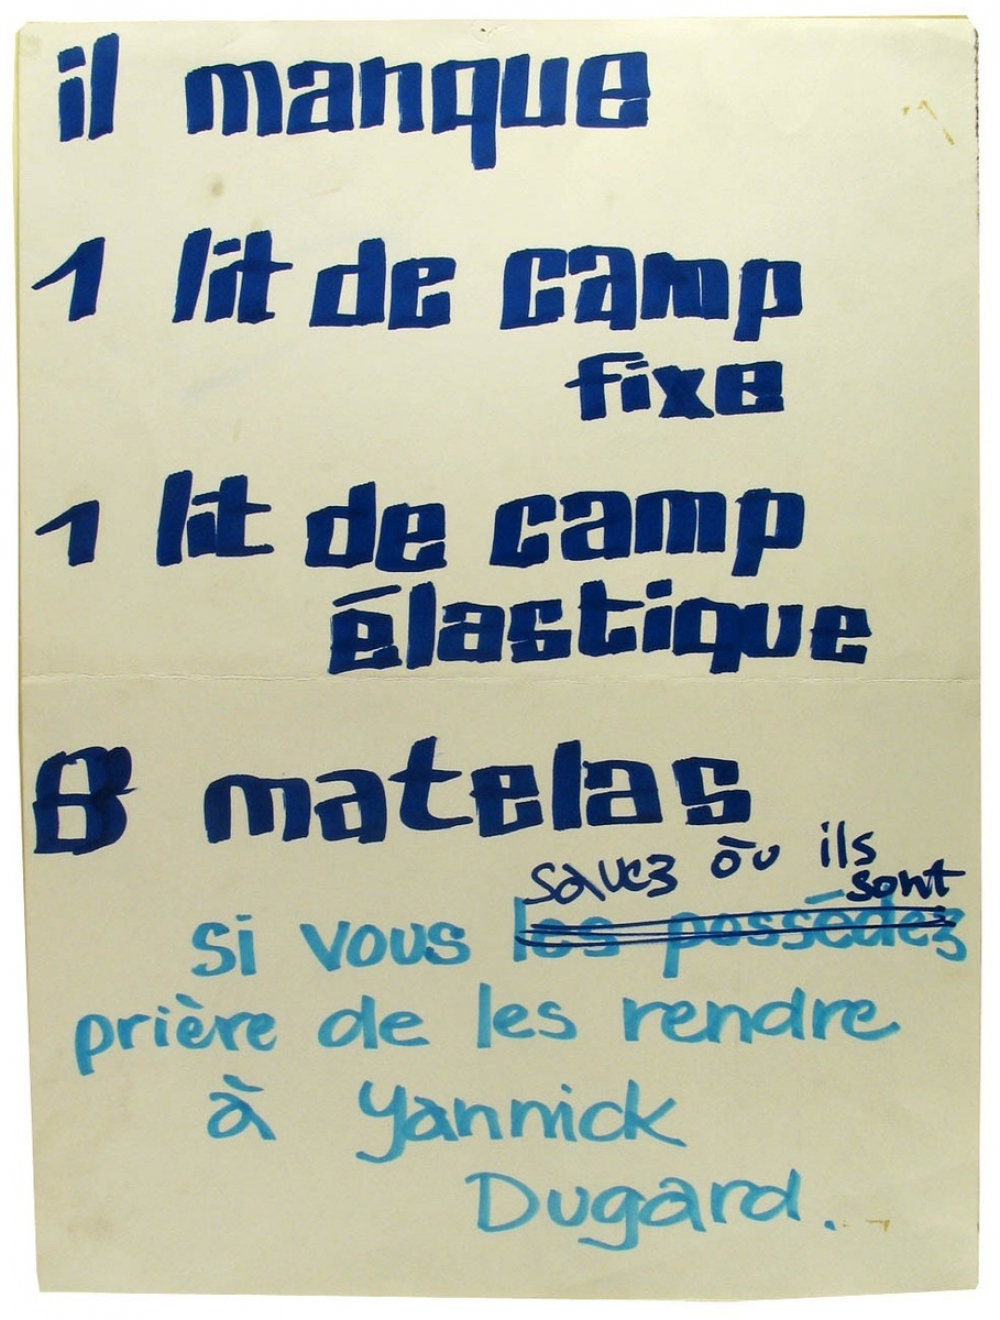 il manque
1 lit de camp
fixe
1 lit de camp
élastique
8 matelas
savez où ils
sont
si vous les possédez
prière de les rendre
à Yannick
Dugard.